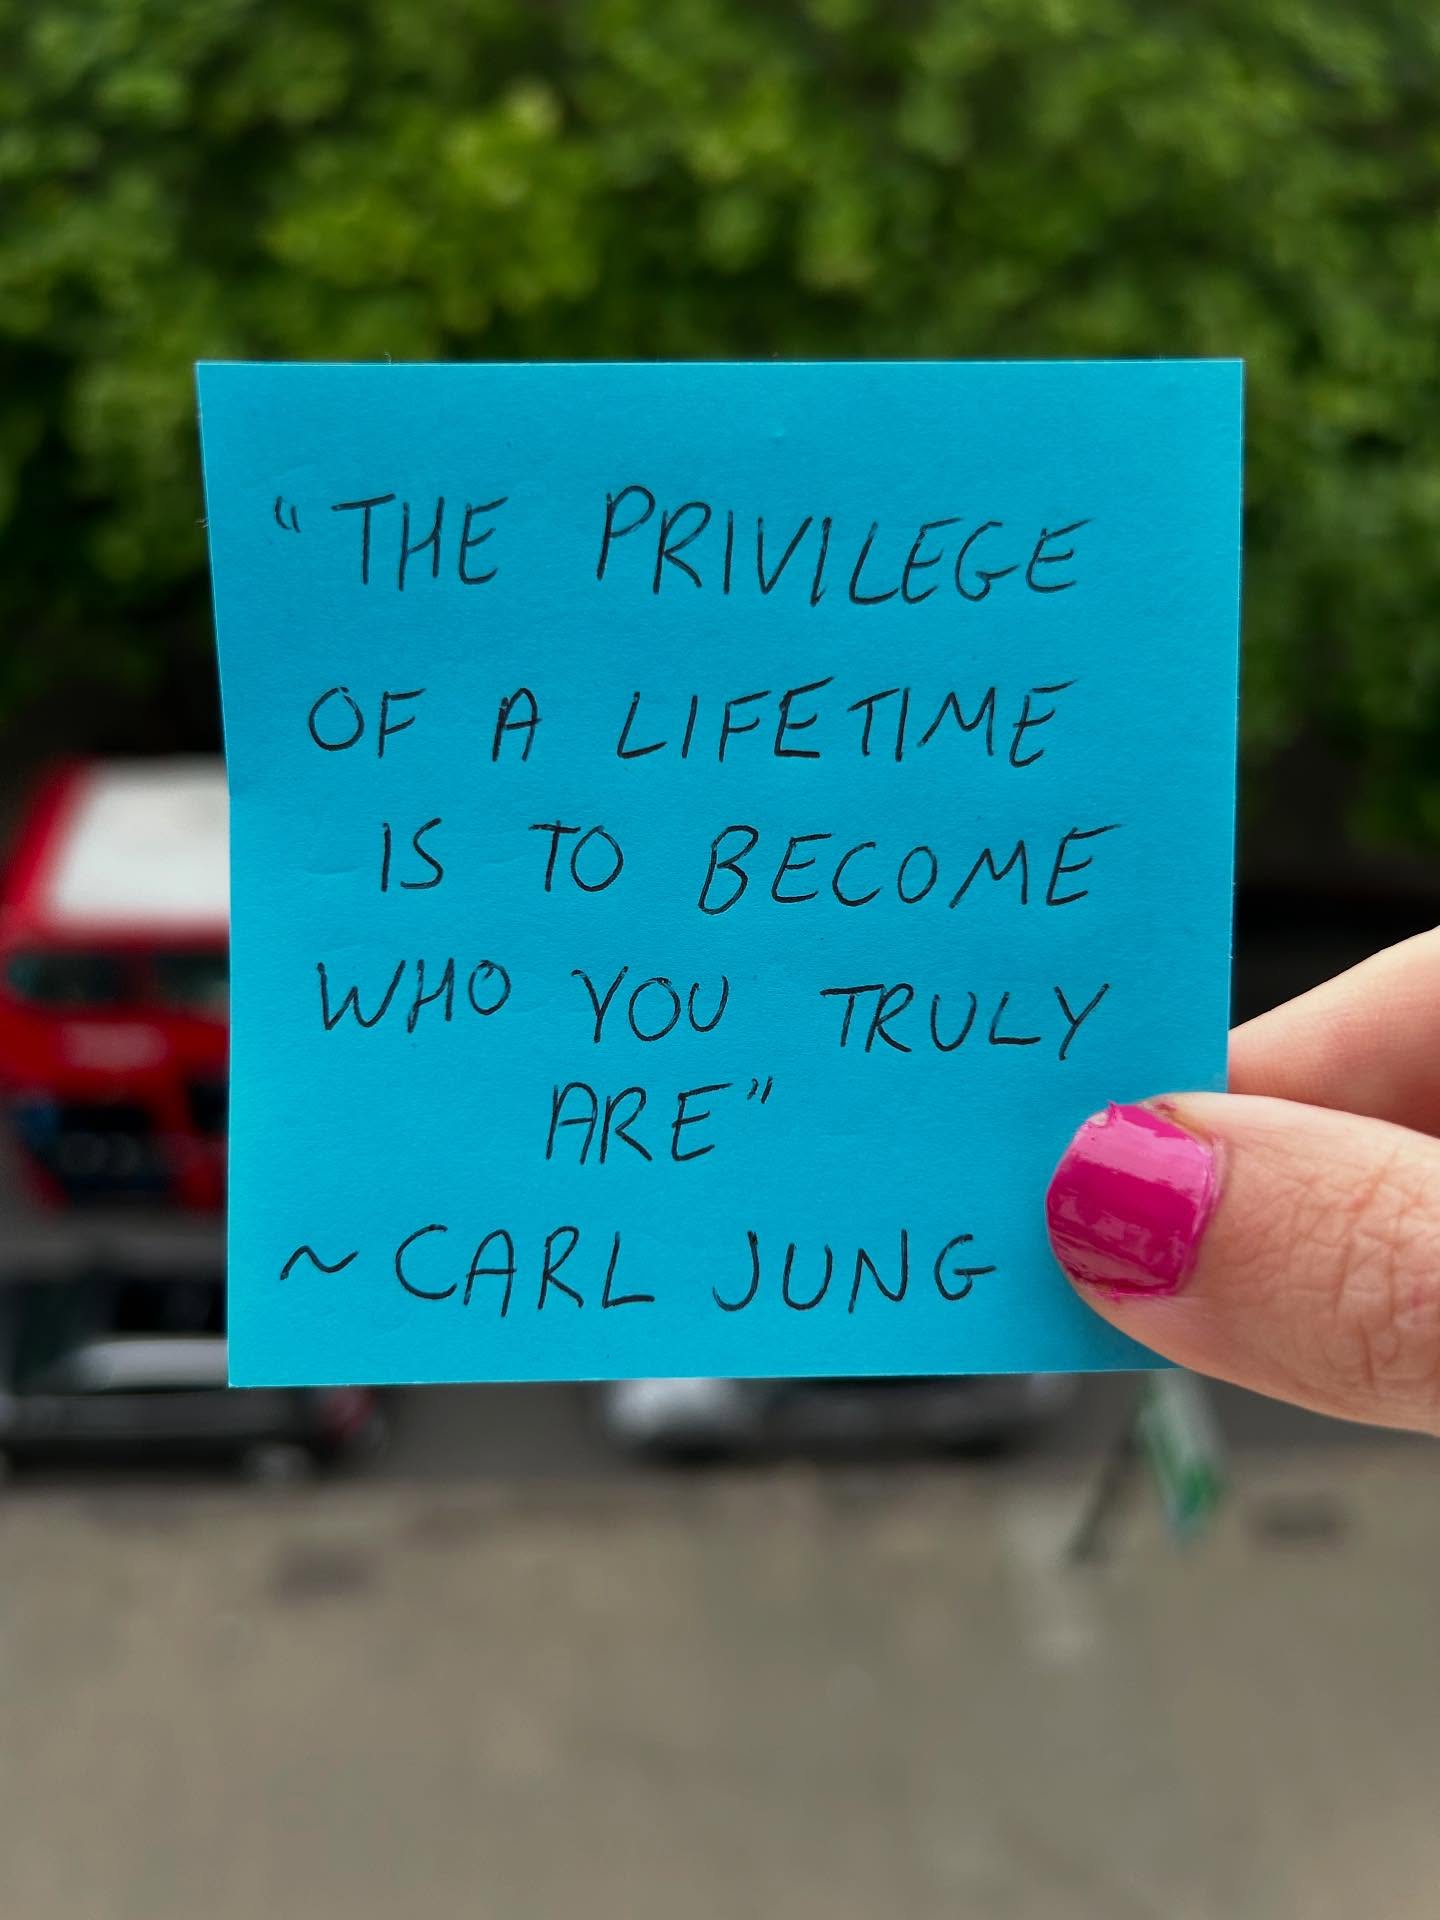 "THE PRIVILEGE
OF A LIFETIME
IS TO BECOME
WHO YOU TRULY
ARE"
~ CARL JUNG